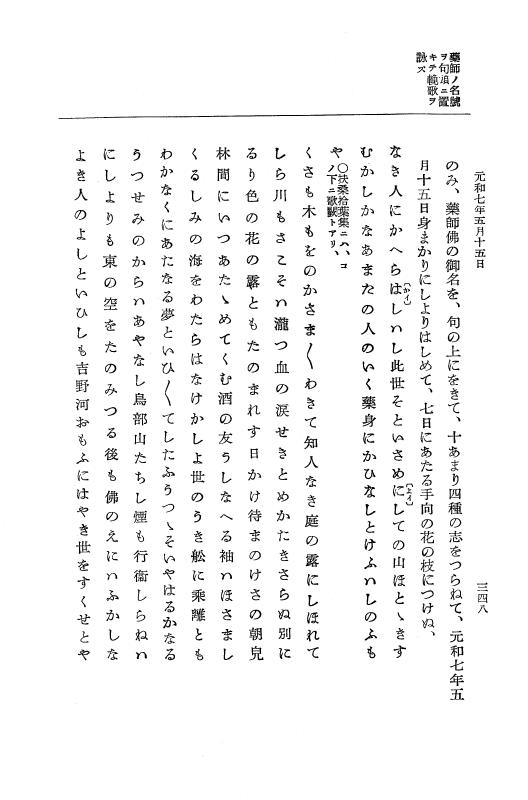 元和七年五月十五日
三四八
藥師ノ名號
ヲ句頂ニ置
キテ輓歌ヲ
詠ズ
のみ、藥師佛の御名を、句の上にをきて、十あまり四種の志をつらねて、元和七年五
月十五日身まかりにしよりはしめて、七日にあたる手向の花の枝につけぬ、
なき人にかへらは〔かイ〕しいし此世そといさめに〔よイ〕しての山ほとゝきす
むかしかなあまたの人のいく藥身にかひなしとけふハしのふも
や〇扶桑拾葉集ニハ、コノ下ニ歌闕トアリ、
くさも木もをのかさま〳〵わきて知人なき庭の露にしほれて
しら川もさこそハ瀧つ血の涙せきとめかたきさらぬ別に
るり色の花の露ともたのまれす日かけ待まのけさの朝皃
林間にいつあたゝめてくむ酒の友うしなへる袖ハほさまし
くるしみの海をわたらはなけかしよ世のうき舩に乘離とも
わかなくにあたなる夢といひ〳〵てしたふうつゝそいやはるかなる
うつせみのからハあやなし鳥部山たちし煙も行衞しらねハ
にしよりも東の空をたのみつる後も佛のえにハふかしな
よき人のよしといひしも吉野河おもふにはやき世をすくせとや